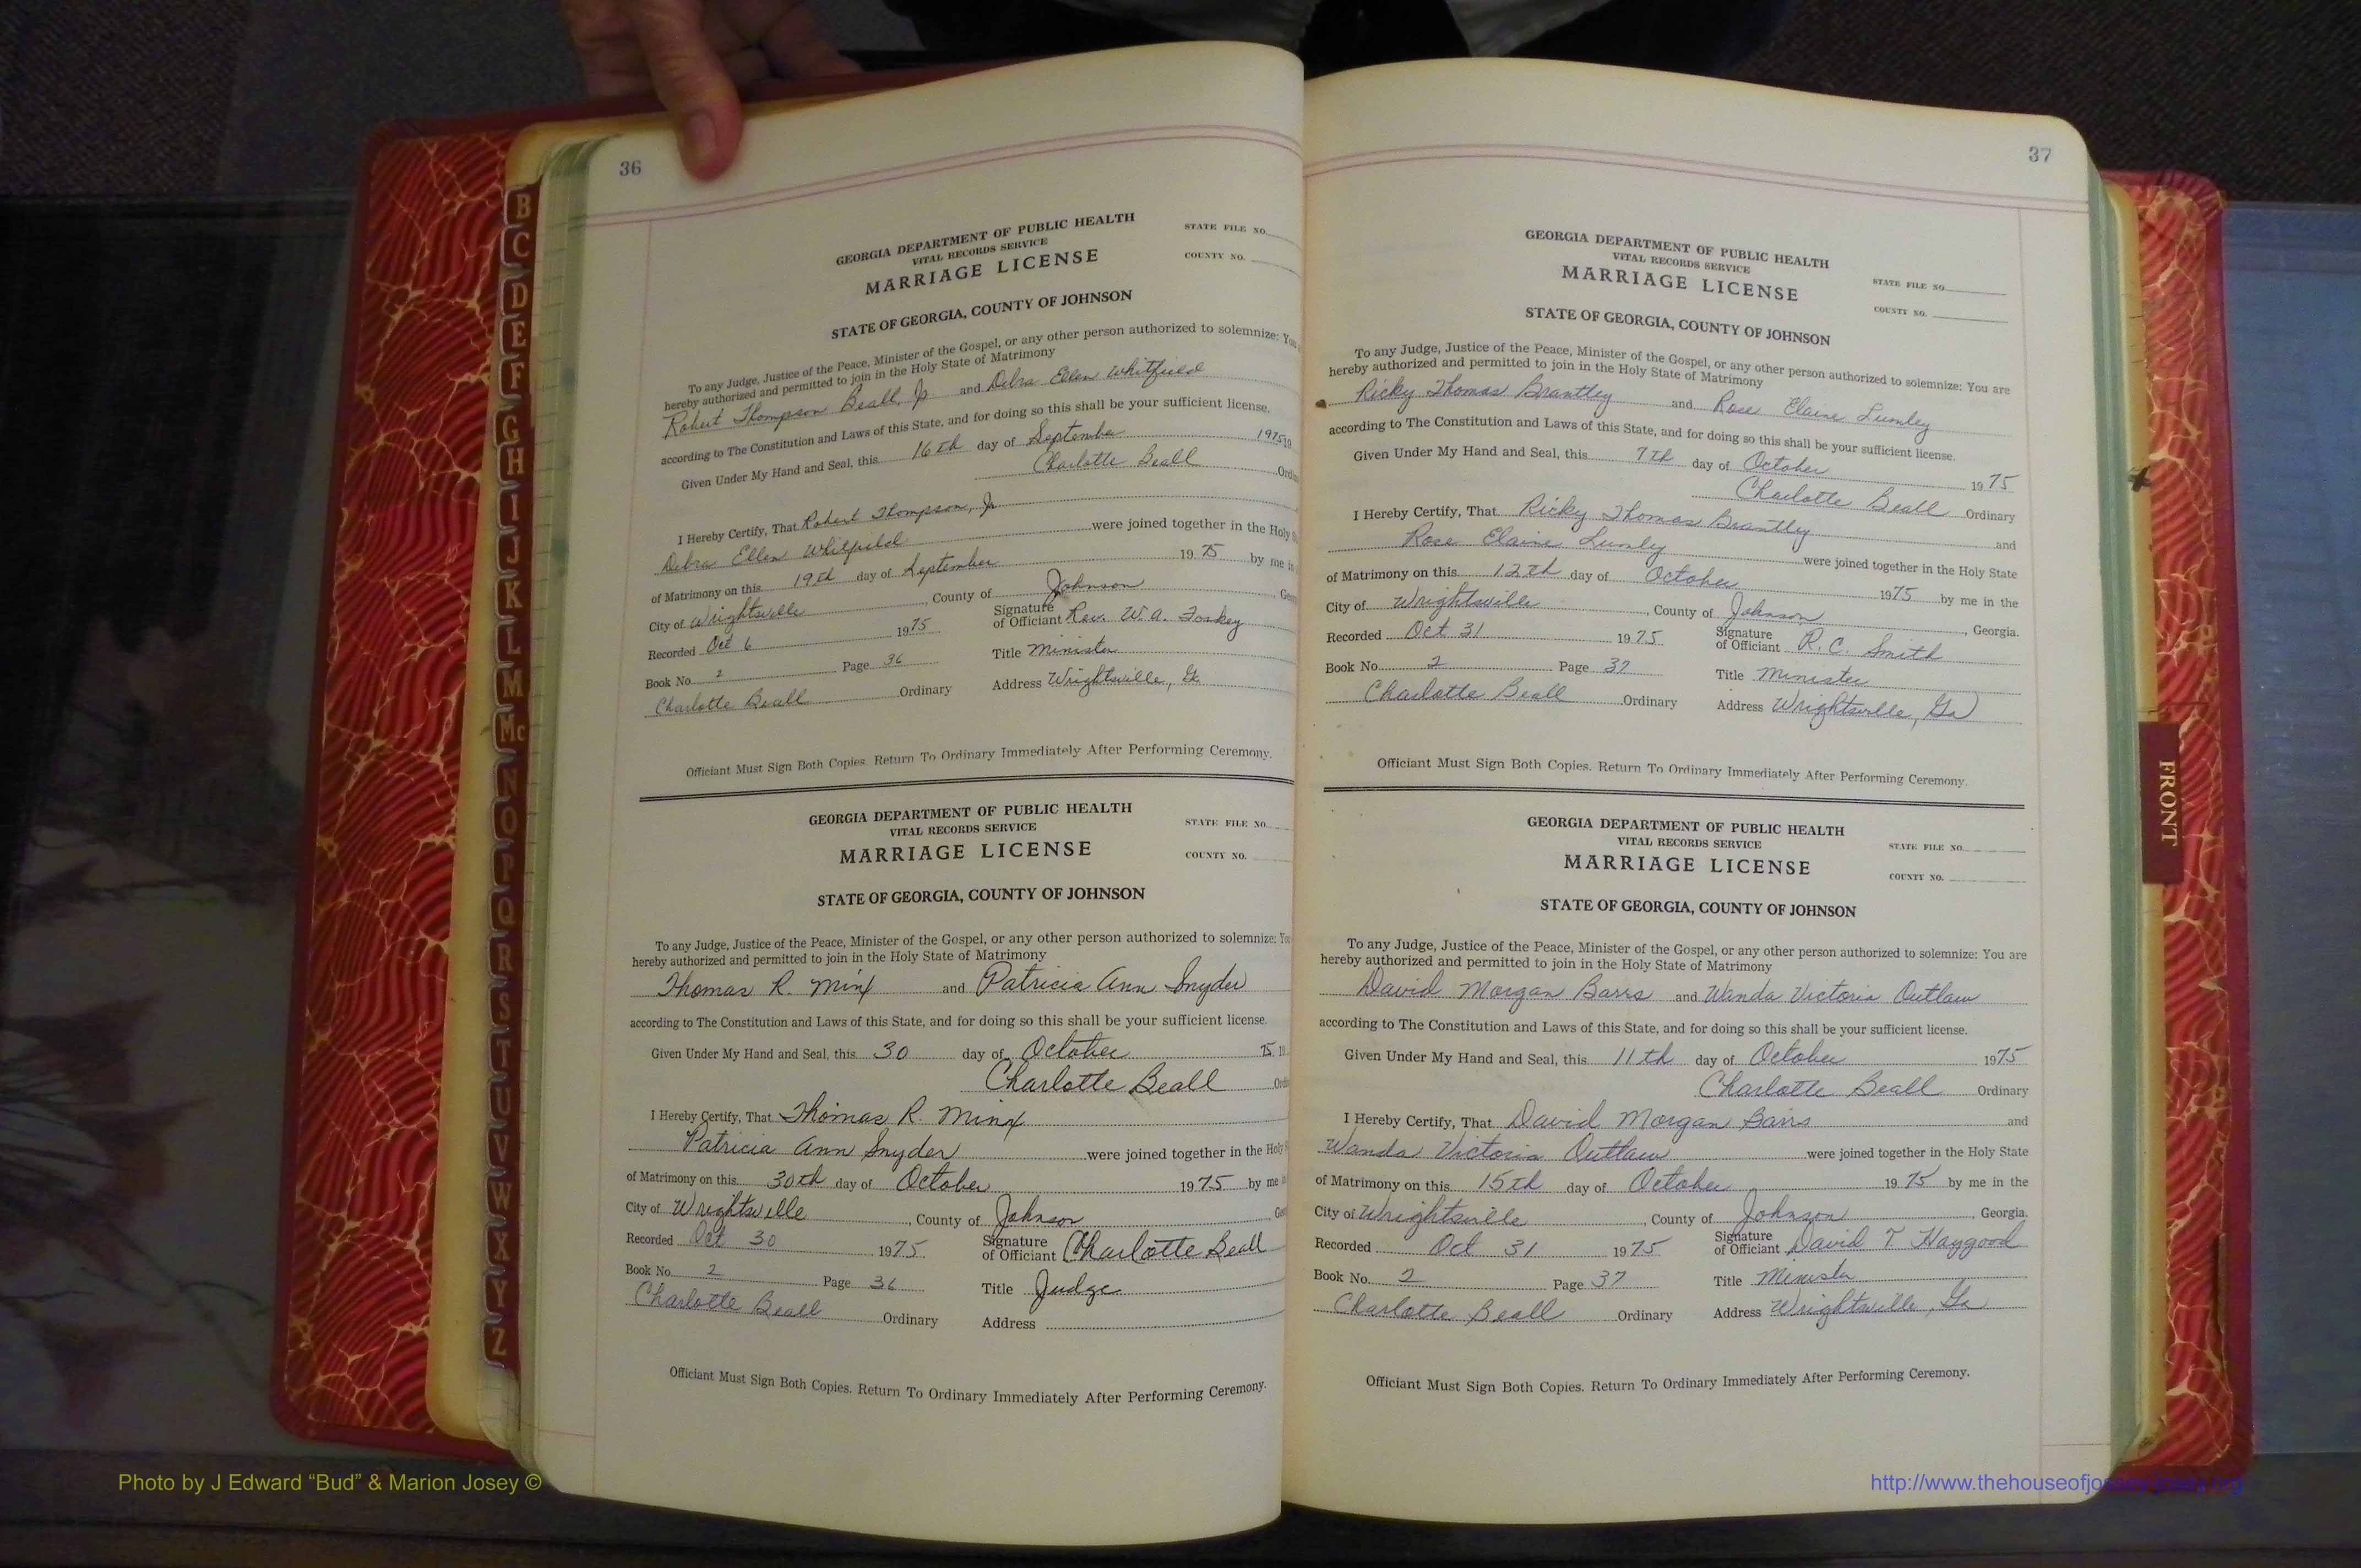 36
GEORGIA DEPARTMENT OF PUBLIC HEALTH
VITAL RECORDS SERVICE
MARRIAGE LICENSE
STATE FILE NO.
COUNTY NO.
STATE OF GEORGIA, COUNTY OF JOHNSON
To any Judge, Justice of the Peace, Minister of the Gospel, or any other person authorized to solemnize: You
hereby authorized and permitted to join in the Holy State of Matrimony
Robert Thompson Beall, Jr and Debra Ellen Whitfield
according to The Constitution and Laws of this State, and for doing so this shall be your sufficient license.
Given Under My Hand and Seal, this 16th day of September 1975 19
Charlotte Beall Ord
I Hereby Certify, That Robert Thompson, Jr
Debra Ellen Whitfield were joined together in the Holy S
of Matrimony on this 19th day of September 1975 by me in
City of Wrightsville, County of Johnson, Geo
Recorded Oct 6 1975 Signature of Officiant Rev. W. A. Foskey
Book No. 2 Page 36 Title Minister
Charlotte Beall Ordinary Address Wrightsville, Ga
Officiant Must Sign Both Copies. Return To Ordinary Immediately After Performing Ceremony.
GEORGIA DEPARTMENT OF PUBLIC HEALTH
VITAL RECORDS SERVICE
MARRIAGE LICENSE
STATE FILE NO.
COUNTY NO.
STATE OF GEORGIA, COUNTY OF JOHNSON
To any Judge, Justice of the Peace, Minister of the Gospel, or any other person authorized to solemnize: You
hereby authorized and permitted to join in the Holy State of Matrimony
Thomas R. Minx and Patricia Ann Snyder
according to The Constitution and Laws of this State, and for doing so this shall be your sufficient license.
Given Under My Hand and Seal, this 30 day of October 75 19
Charlotte Beall Ord
I Hereby Certify, That Thomas R. Minx
Patricia Ann Snyder were joined together in the Holy S
of Matrimony on this 30th day of October 1975 by me i
City of Wrightsville, County of Johnson, Geo
Recorded Oct 30 1975 Signature of Officiant Charlotte Beall
Book No. 2 Page 36 Title Judge
Charlotte Beall Ordinary Address
Officiant Must Sign Both Copies. Return To Ordinary Immediately After Performing Ceremony.
37
GEORGIA DEPARTMENT OF PUBLIC HEALTH
VITAL RECORDS SERVICE
MARRIAGE LICENSE
STATE FILE NO.
COUNTY NO.
STATE OF GEORGIA, COUNTY OF JOHNSON
To any Judge, Justice of the Peace, Minister of the Gospel, or any other person authorized to solemnize: You are
hereby authorized and permitted to join in the Holy State of Matrimony
Ricky Thomas Brantley and Rose Elaine Lumley
according to The Constitution and Laws of this State, and for doing so this shall be your sufficient license.
Given Under My Hand and Seal, this 7th day of October 1975
Charlotte Beall Ordinary
I Hereby Certify, That Ricky Thomas Brantly and
Rose Elaine Lumly were joined together in the Holy State
of Matrimony on this 12th day of October 1975 by me in the
City of Wrightsville, County of Johnson, Georgia.
Recorded Oct 31 1975 Signature of Officiant R. C. Smith
Book No. 2 Page 37 Title Minister
Charlotte Beall Ordinary Address Wrightsville, Ga
Officiant Must Sign Both Copies. Return To Ordinary Immediately After Performing Ceremony.
GEORGIA DEPARTMENT OF PUBLIC HEALTH
VITAL RECORDS SERVICE
MARRIAGE LICENSE
STATE FILE NO.
COUNTY NO.
STATE OF GEORGIA, COUNTY OF JOHNSON
To any Judge, Justice of the Peace, Minister of the Gospel, or any other person authorized to solemnize: You are
hereby authorized and permitted to join in the Holy State of Matrimony
David Morgan Barrs and Wanda Victoria Outlaw
according to The Constitution and Laws of this State, and for doing so this shall be your sufficient license.
Given Under My Hand and Seal, this 11th day of October 1975
Charlotte Beall Ordinary
I Hereby Certify, That David Morgan Barrs and
Wanda Victoria Outlaw were joined together in the Holy State
of Matrimony on this 15th day of October 1975 by me in the
City of Wrightsville, County of Johnson, Georgia.
Recorded Oct 31 1975 Signature of Officiant David T. Haygood
Book No. 2 Page 37 Title Minister
Charlotte Beall Ordinary Address Wrightsville, Ga
Officiant Must Sign Both Copies. Return To Ordinary Immediately After Performing Ceremony.
B
C
D
E
F
G
H
I
J
K
L
M
Mc
N
O
P
Q
R
S
T
U
V
W
X
Y
Z
FRONT
Photo by J Edward “Bud” & Marion Josey ©
http://www.thehouseofjossey-josey.org